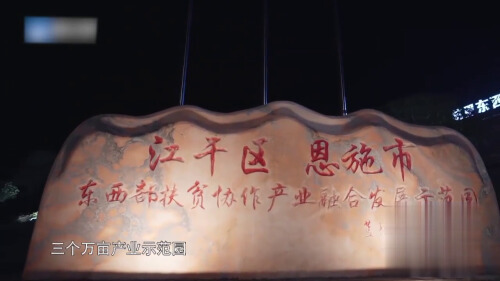 东西
江干区 恩施市
东西部扶贫协作产业融合发展示范园
三个万亩产业示范园